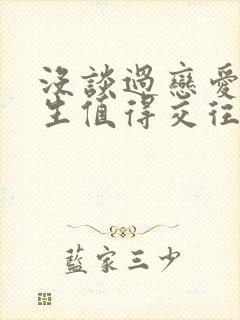 沒談過戀愛
生值得交往
藍家三少